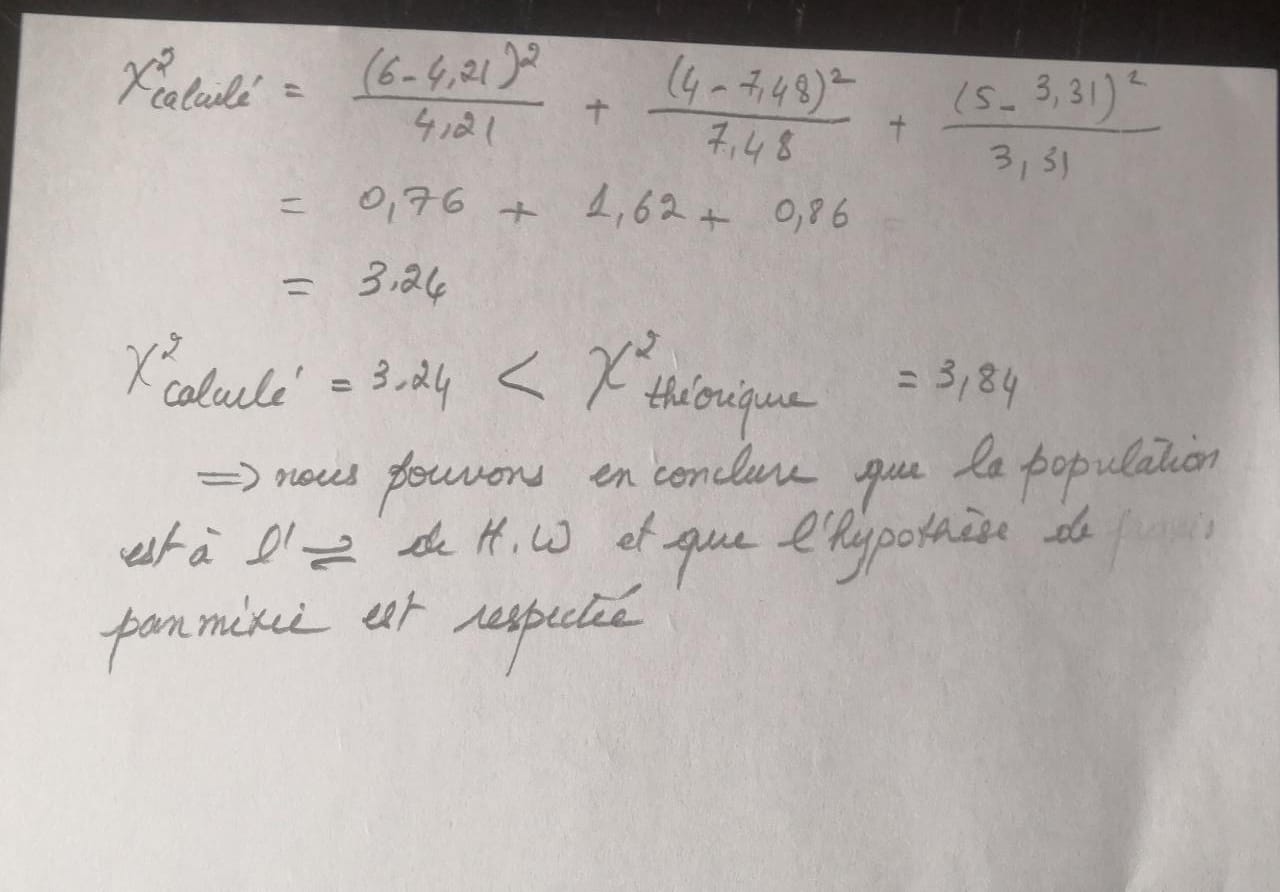 χ²calculé = (6-4,21)²/4,21 + (4-7,48)²/7,48 + (5-3,31)²/3,31
= 0,76 + 1,62 + 0,86
= 3.24
χ²calculé = 3.24 < χ²théorique = 3,84
⇒ nous pouvons en conclure que la population
est à l'⇌ de H.W et que l'hypothèse de
panmixie est respectée